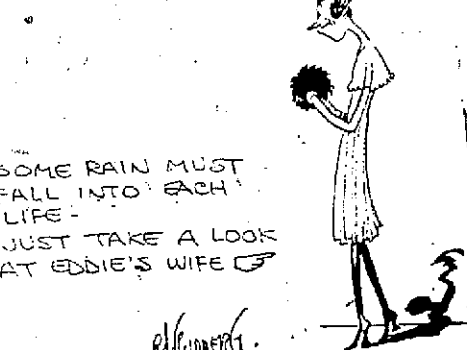 SOME RAIN MUST
FALL INTO EACH
LIFE -
JUST TAKE A LOOK
AT EDDIE'S WIFE